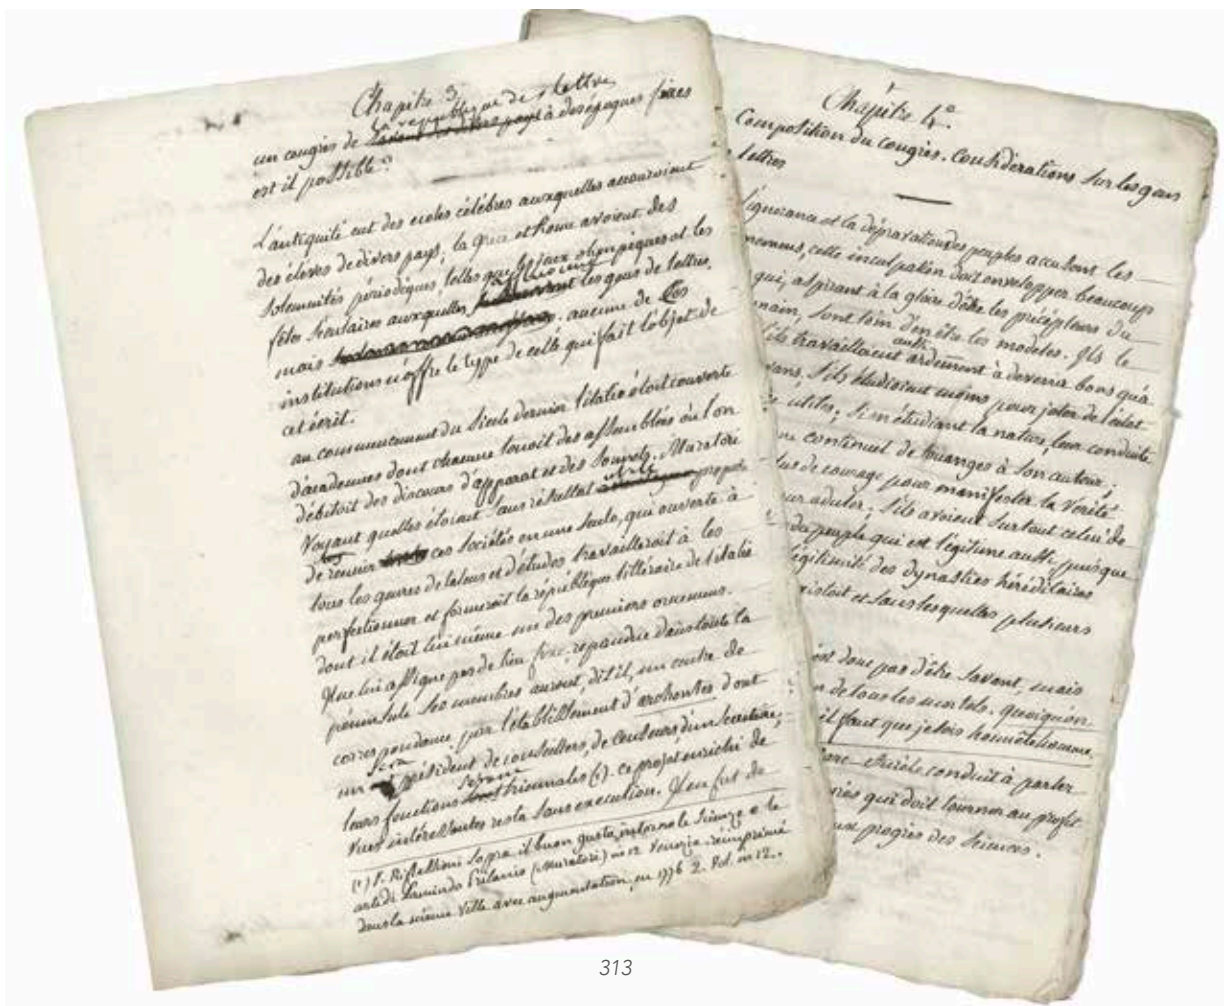 Chapitre 3.
la republique des lettres
un congrès de à des époques fixes
est il possible?
L'antiquité eut des ecoles célèbres auxquelles accouroient
des élèves de divers pays; la Grece et Rome avoient des
solemnités périodiques, telles que les jeux olympiques et les
affluoient
fêtes séculaires auxquelles les gens de lettres.
mais aucune de ces
institutions n'offre le type de celle qui fait l'objet de
cet écrit.
au commencement du siecle dernier l'italie étoit couverte
d'academies dont chacune tenoit des assemblées où l'on
débitoit des discours d'apparat et des sonnets. Muratori
utile
voyant quelles étoient sans résultat proposa
de reunir ces sociétés en une seule, qui ouverte à
tous les genres de talens et d'études travailleroit à les
perfectionner et formeroit la république littéraire de l'italie
dont il étoit lui même un des premiers ornemens.
Il ne lui assigne pas de lieu fixe, repandue dans toute la
péninsule ses membres auront, dit il, un centre de
correspondance par l'établissement d'archontes dont
sera
un président de conseillers, de censeurs, d'un secretaire;
seront
leurs fonctions triennales (1). ce projet enrichi de
vues intéressantes resta sans execution. Il en fut de
(1) V. Riflessioni sopra il buon gusto, intorno le scienze e le
arti di Lamindo Pritanio (muratori) in 12 Venezia. réimprimé
dans la même ville avec augmentation, en 1776 2. Vol. in 12.
Chapitre 4e.
Composition du congrès. Considerations sur les gens
lettres
l'ignorance et la dépravation des peuples accusent les
cette inculpation doit envelopper beaucoup
qui, aspirant à la gloire d'être les précepteurs du
sont loin d'en être les modeles. Ils le
aussi
s'ils travailloient ardemment à devenir bons qu'à
s'ils étudioient moins pour jeter de l'éclat
utiles; si en étudiant la nature, leur conduite
continuel de louanges à son auteur;
plus de courage pour manifester la vérité
aduler; s'ils avoient surtout celui de
du peuple qui est légitime aussi, puisque
légitimité des dynasties héréditaires
et sans lesquelles plusieurs
donc pas d'être savant, mais
de tous les mortels. quoiqu'on
il faut que je sois honnête homme
conduit à parler
qui doit tourner au profit
progrès des sciences.
313